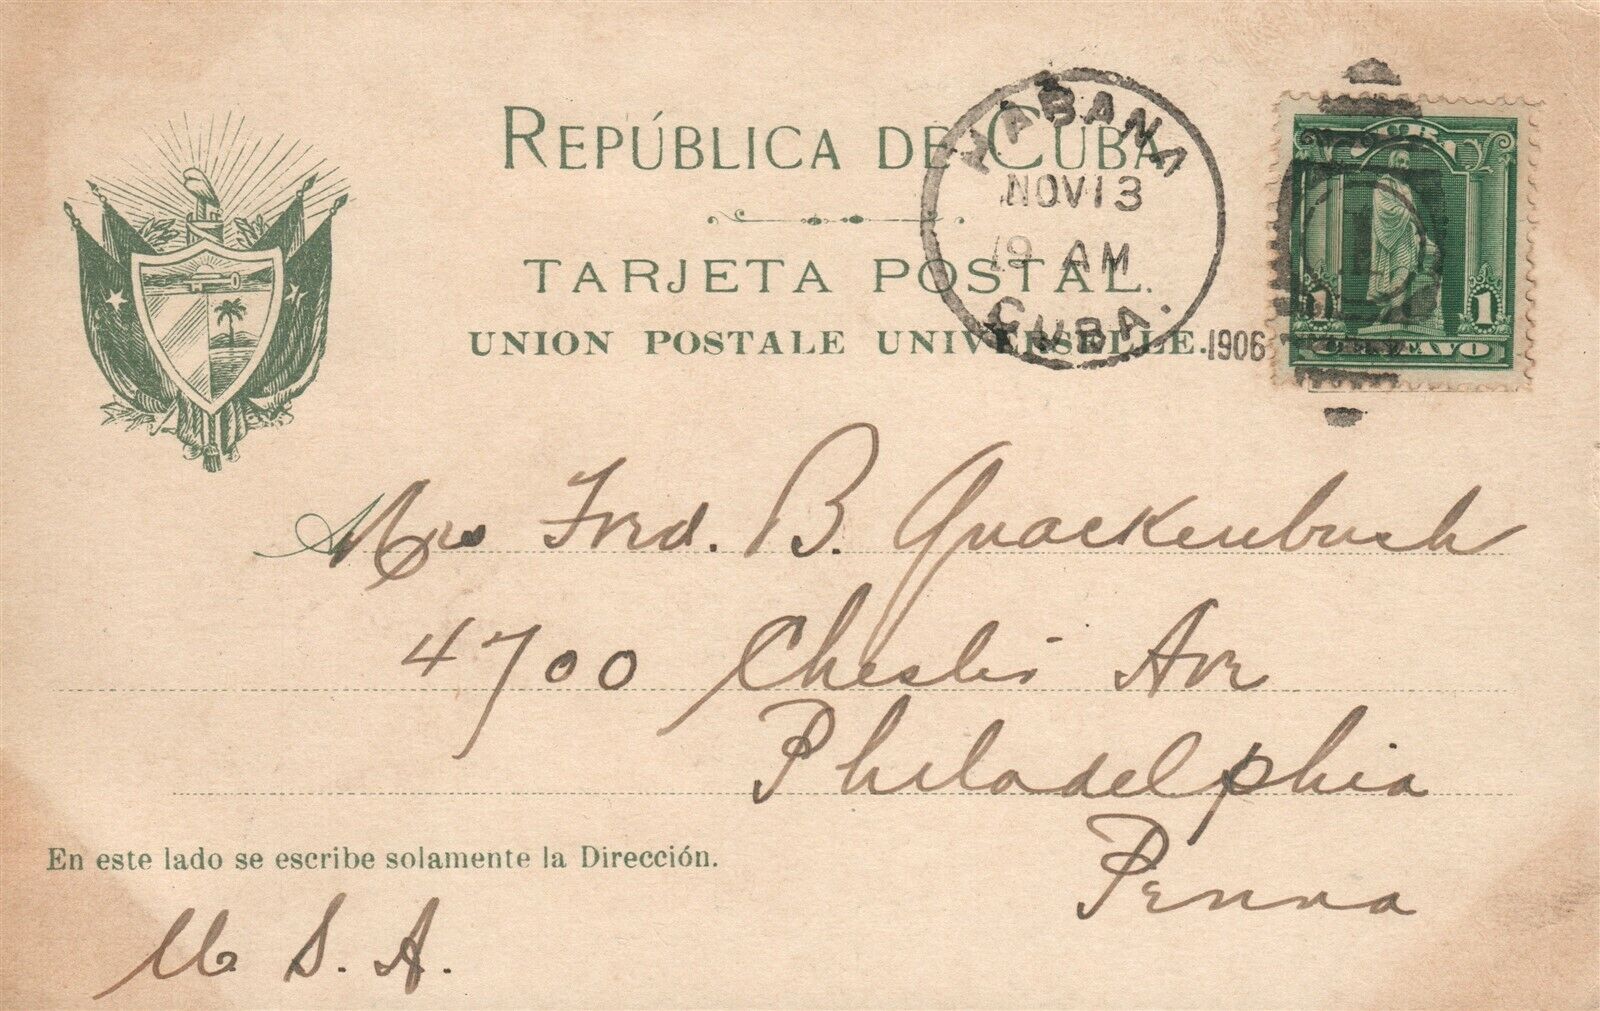 REPÚBLICA DE CUBA
TARJETA POSTAL.
UNION POSTALE UNIVERSELLE.
HABANA
NOV 13
9 AM
CUBA.
1906
CUBA
1
1 1
CENTAVO
Mrs Fred. B. Quackenbush
4700 Chester Ave
Philadelphia
Penna
En este lado se escribe solamente la Dirección.
U. S. A.